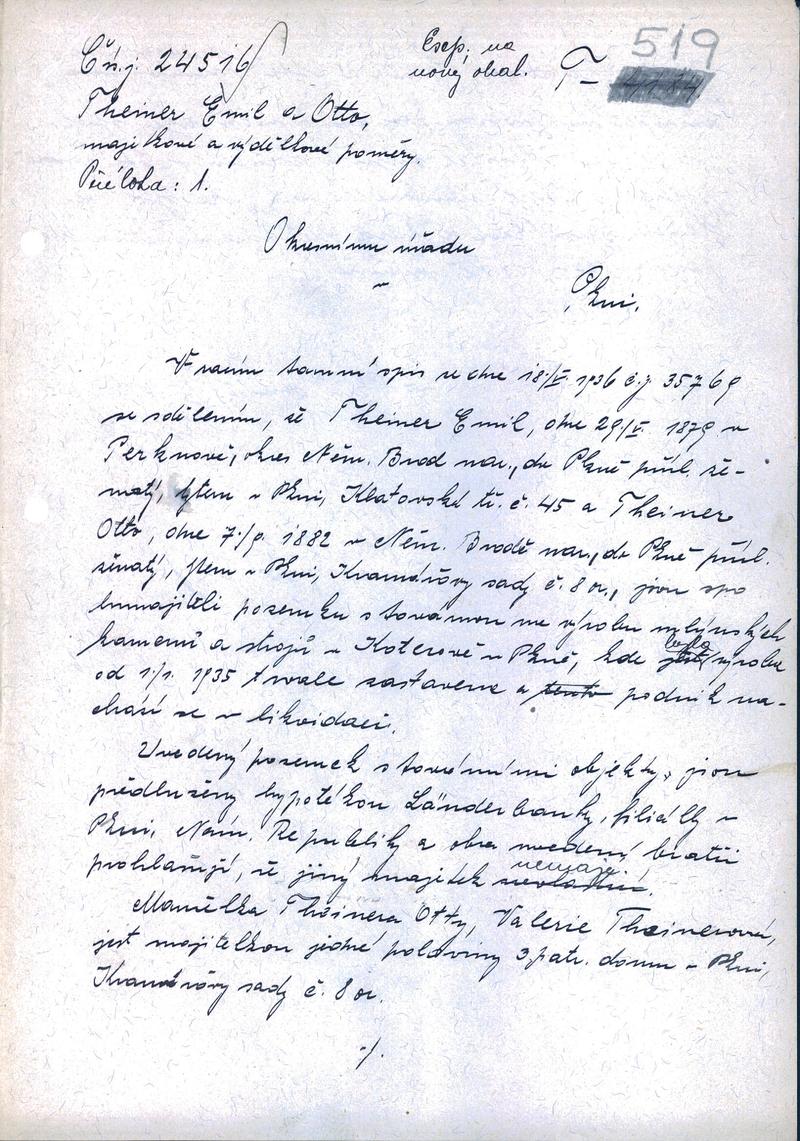 Čís.j. 24516
Esep. na
nový obal.
T-
519
Theiner Emil a Otto,
majetkové a výdělkové poměry.
Příloha: 1.
Okresnímu úřadu
v
Plzni.
Vracím tamní spis ze dne 18./V. 1936 č.j. 35769
se sdělením, že Theiner Emil, dne 29./V. 1879 v
Perknově, okres Něm. Brod nar., do Plzně přísl. že-
natý, bytem v Plzni, Klatovská tř. č. 45 a Theiner
Otto, dne 7./9. 1882 v Něm. Brodě nar., do Plzně přísl.
ženatý, bytem v Plzni, Kramářovy sady č. 8 or., jsou spo
lumajiteli pozemku s továrnou na výrobu mlýnských
kamenů a strojů v Koterově u Plzně, kde byla výroba
od 1./1. 1935 trvale zastavena a tento podnik na-
chází se v likvidaci.
Uvedený pozemek s továrními objekty, jsou
předluženy hypotékou Länderbanky, filiálky v
Plzni, Nám. Republiky a oba uvedení bratři
prohlašují, že jiný majetek nemají.
Manželka Theinera Otty, Valerie Theinerová,
jest majitelkou jedné poloviny 3 patr. domu v Plzni,
Kramářovy sady č. 8 or.
./.